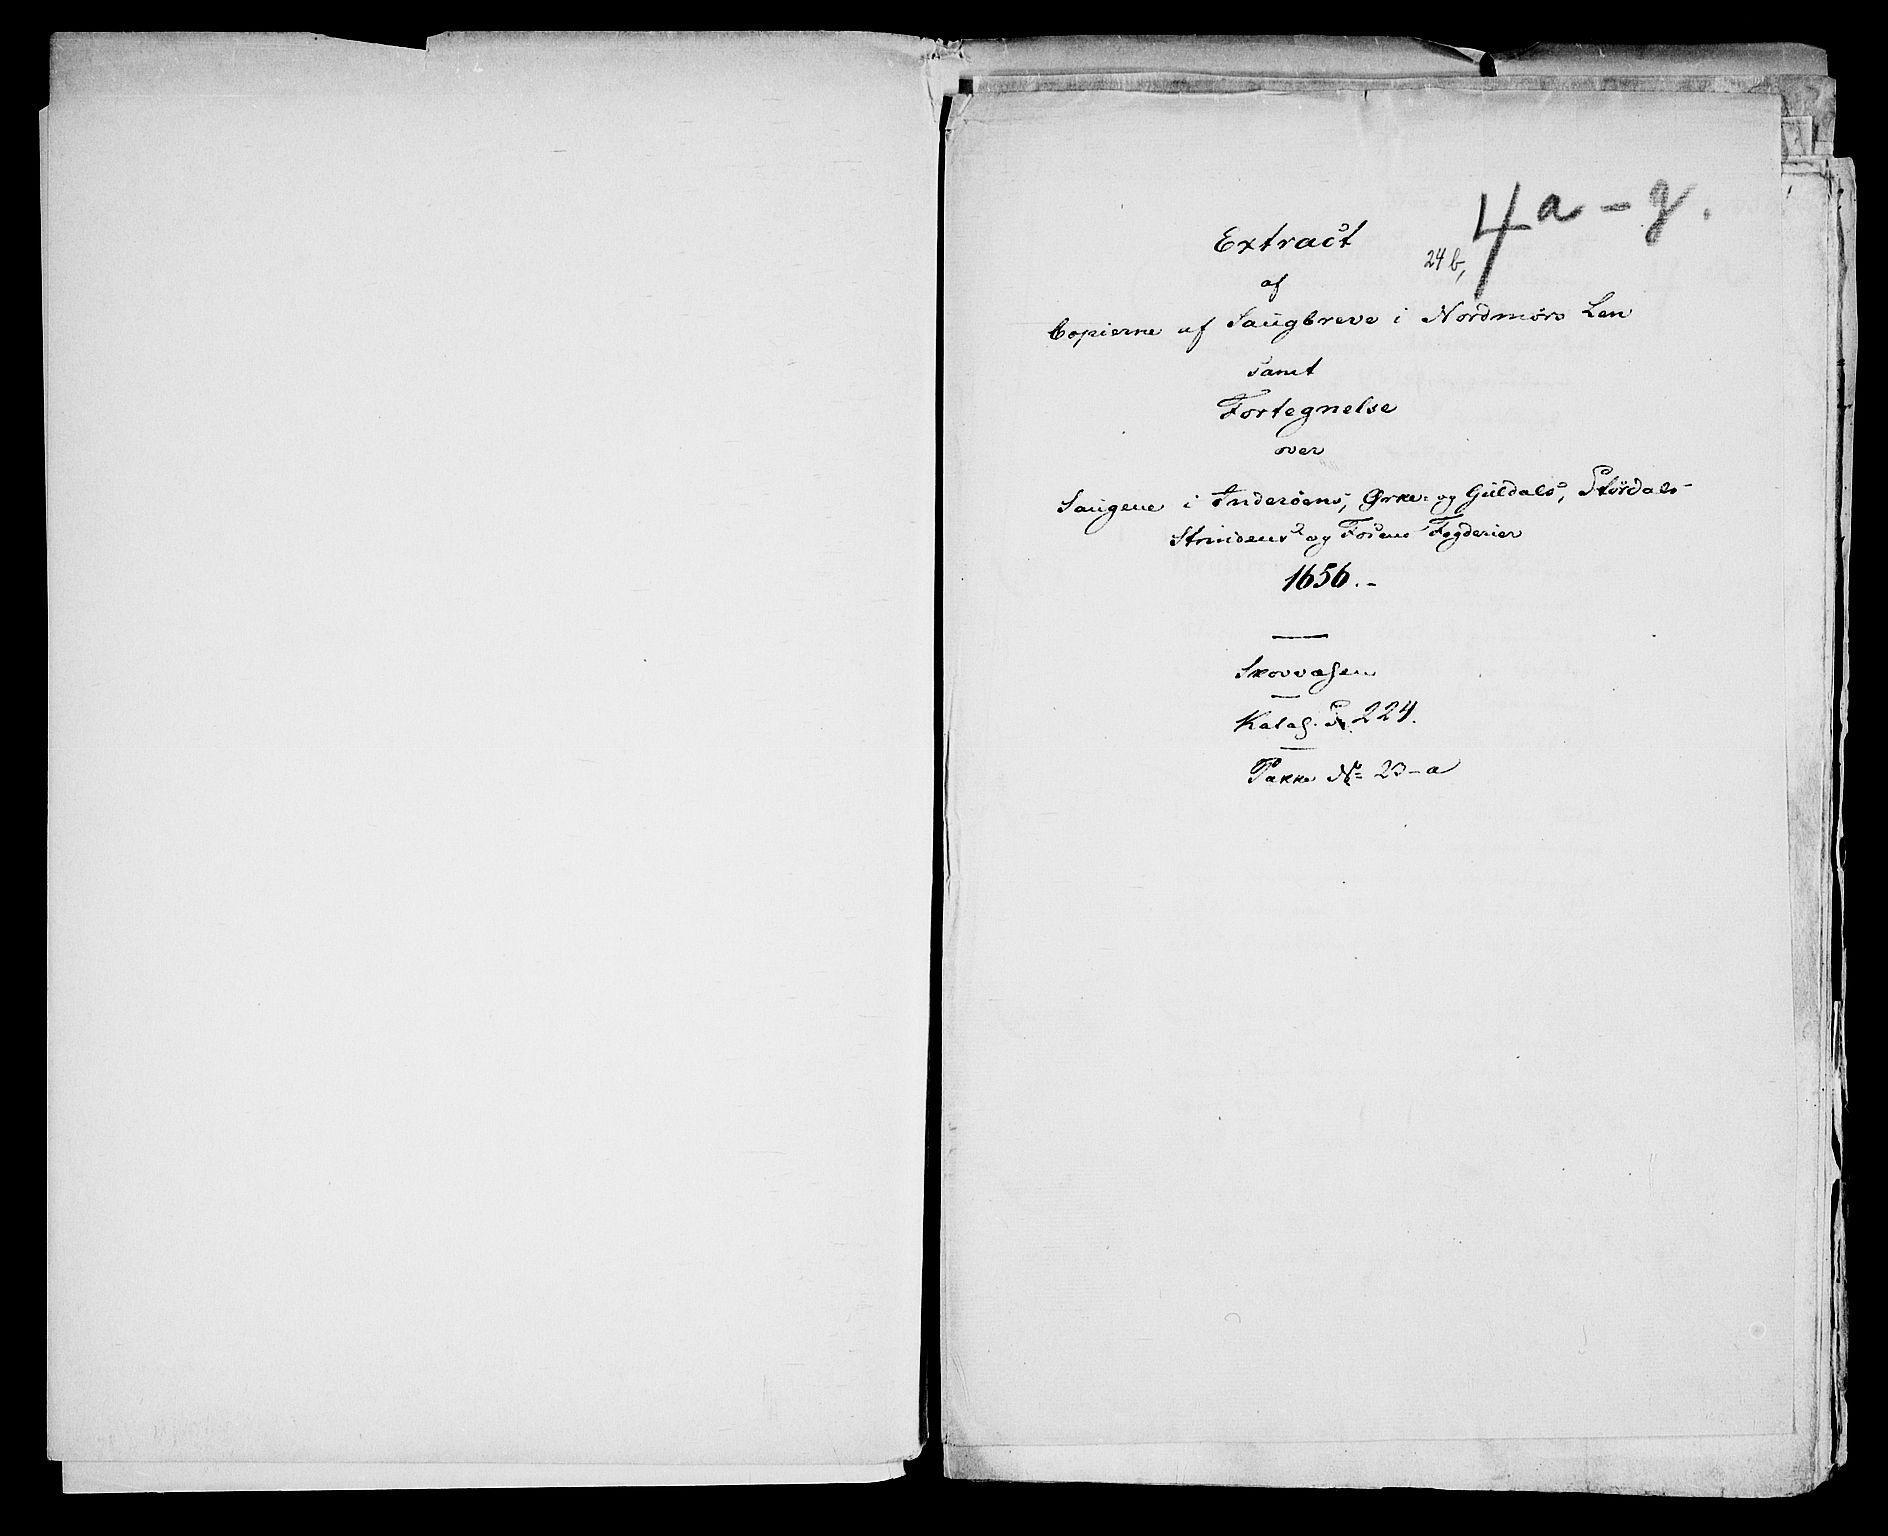 4 a - g.
24 b,
Extract
af
Copierne af Saugbreve i Nordmørs Len
samt
Fortegnelse
over
Saugene i Inderøens, Ørke- og Guldals, Størdals-
Strindens og Fosens Fogderier
1656.-
Skovvæsen
Katal. 224.
Pakke No 23-a